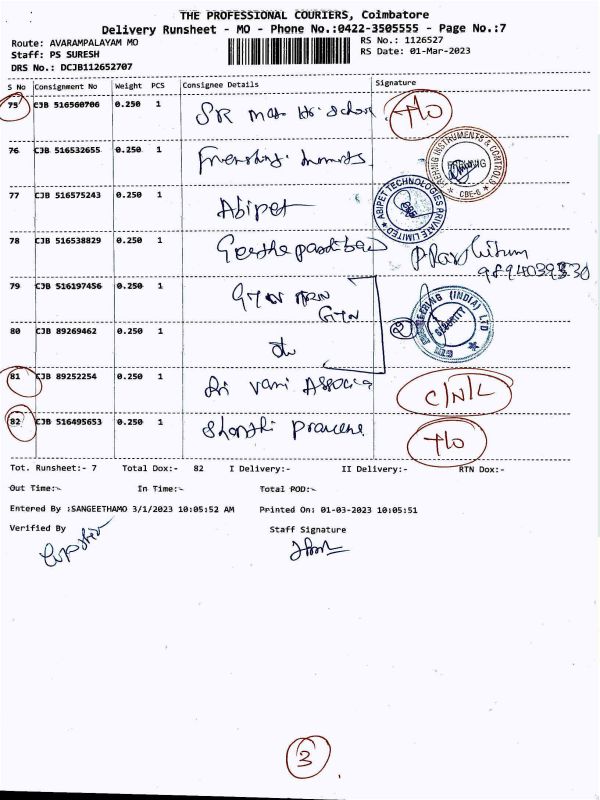 THE PROFESSIONAL COURIERS, Coimbatore
Delivery Runsheet - MO - Phone No.:0422-3505555 - Page No.:7
Route: AVARAMPALAYAM MO
RS No.: 1126527
Staff: PS SURESH
RS Date: 01-Mar-2023
DRS No.: DCJB112652707
S No Consignment No Weight PCS Consignee Details Signature
75 CJB 516560706 0.250 1 SR Mat Hr. School T/O
76 CJB 516532655 0.250 1
INSTRUMENTS & CONTROLS
CBE-6
77 CJB 516575243 0.250 1 Abipet
ABIPET TECHNOLOGIES PRIVATE LIMITED
78 CJB 516538829 0.250 1
79 CJB 516197456 0.250 1 GTN
GTN
ENGINEERING (INDIA) LTD
SECURITY
2
80 CJB 89269462 0.250 1 do
81 CJB 89252254 0.250 1 Sri Vari Associa C/N/L
82 CJB 516495653 0.250 1 T/O
Tot. Runsheet:- 7 Total Dox:- 82 I Delivery:- II Delivery:- RTN Dox:-
Out Time:- In Time:- Total POD:-
Entered By :SANGEETHAMO 3/1/2023 10:05:52 AM Printed On: 01-03-2023 10:05:51
Verified By Staff Signature
3